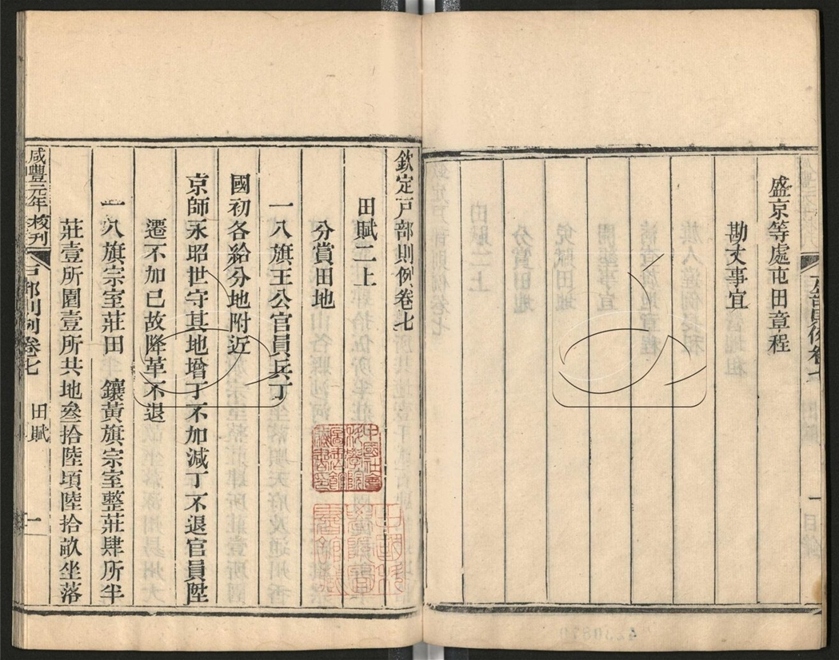 盛京等處屯田章程
勘丈事宜
欽定戶部則例卷七
田賦二上
分賞田地
一八旗王公官員兵丁
國初各給分地附近
京師永昭世守其地增丁不加減丁不退官員陞
遷不加已故降革不退
一八旗宗室莊田 鑲黃旗宗室整莊肆所半
莊壹所園壹所共地叁拾陸頃陸拾畝坐落
咸豐元年校刊 戶部則例卷七 田賦 一